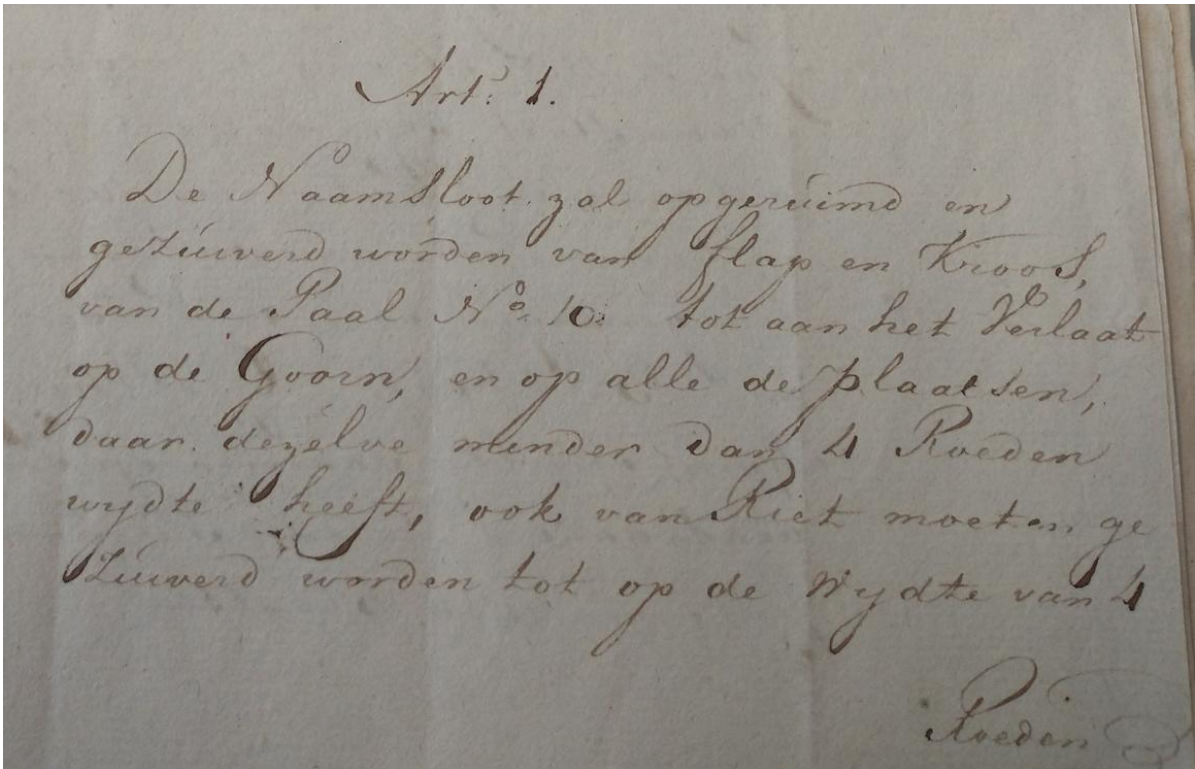 Art: 1.
De Naamsloot zal opgeruimd en
gezuiverd worden van flap en Kroos,
van de Paal No. 10. tot aan het Verlaat
op de Goorn, en op alle de plaatsen,
daar dezelve minder dan 4 Roeden
wydte heeft, ook van Riet moeten ge
zuiverd worden tot op de Wydte van 4
Roeden